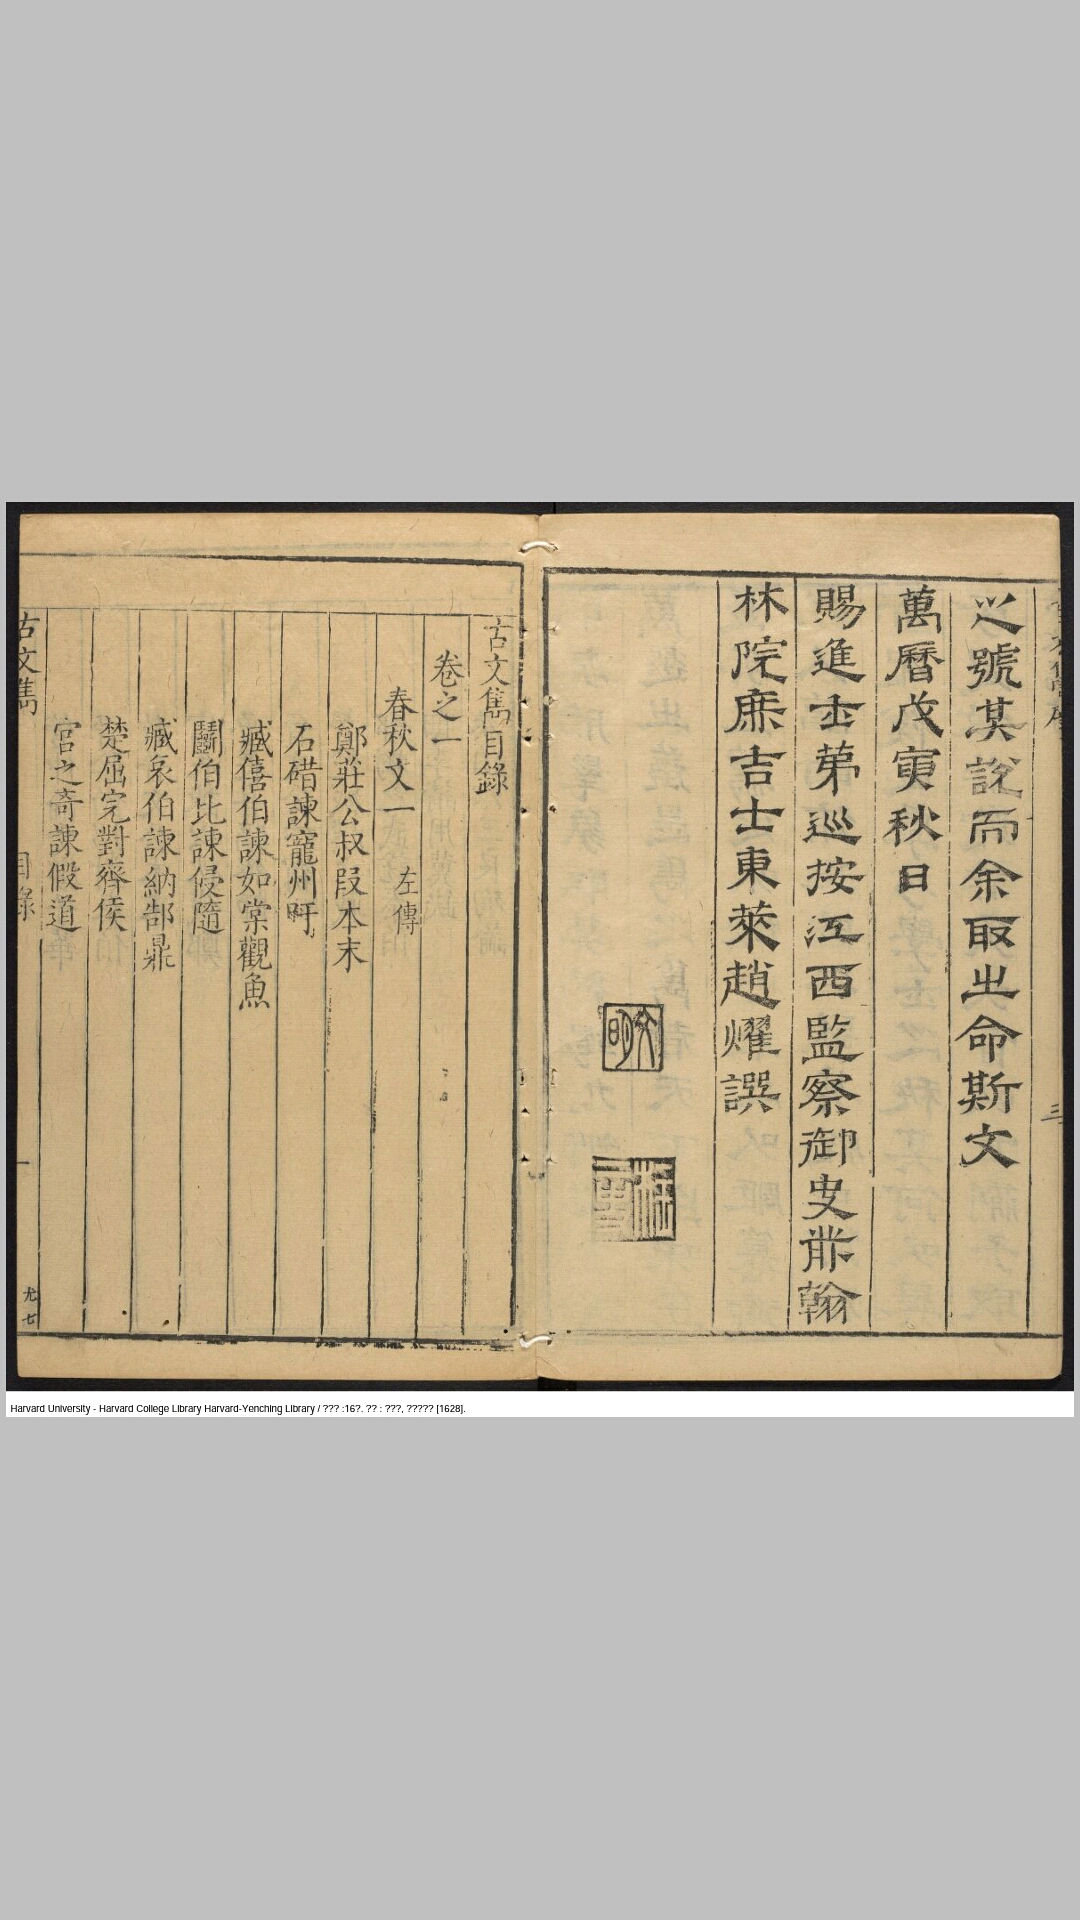 之號其說而余取出命斯文
萬曆戊寅秋日
賜進士第巡按江西監察御史前翰
林院庶吉士東萊趙燿譔
古文雋目錄
卷之一
春秋文一 左傳
鄭莊公叔段本末
石碏諫寵州吁
臧僖伯諫如棠觀魚
鬭伯比諫侵隨
臧哀伯諫納郜鼎
楚屈完對齊侯
宮之奇諫假道
古文雋 目錄 一 尤七
Harvard University - Harvard College Library Harvard-Yenching Library / ??? :16?. ?? : ???, ????? [1628].